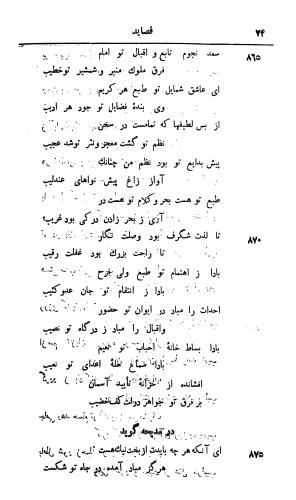 ۷۴ قصاید
۸۶۵ سعد نجوم تابع و اقبال تو امام
فرق ملوك منبر و شمشیر تو خطیب
ای عاشق شمایل تو طبع هر کریم
وی بندۀ فضایل تو جود هر ادیب
از بس لطیفها که تمامست در سخن
نظم تو گشت معجز و نثر تو شد عجیب
پیش بدایع تو بود نظم من چنانك
آواز زاغ پیش نواهای عندلیب
طبع تو هست بحر و کلام تو هست در
آری ز بحر زادن در کی بود غریب
۸۷۰ تا لذت شگرف بود وصلت نگار
تا راحت بزرك بود غفلت رقیب
بادا ز اهتمام تو طبع ولی فرح
بادا ز انتقام تو جان عدو کئیب
احداث را مباد در ایوان تو حضور
واقبال را مباد ز درگاه تو نصیب
بادا بساط خانۀ احباب تو نعیم
بادا سماع نغمۀ اعدای تو نعیب
افشانده از خزانۀ تأیید آسمان
بر فرق تو جواهر دولت کف خضیب
در مدیحه گوید
۸۷۵ ای آنکه هر چه بایدت از بخت نیك هست
هرگز مباد آمده در جاه تو شکست